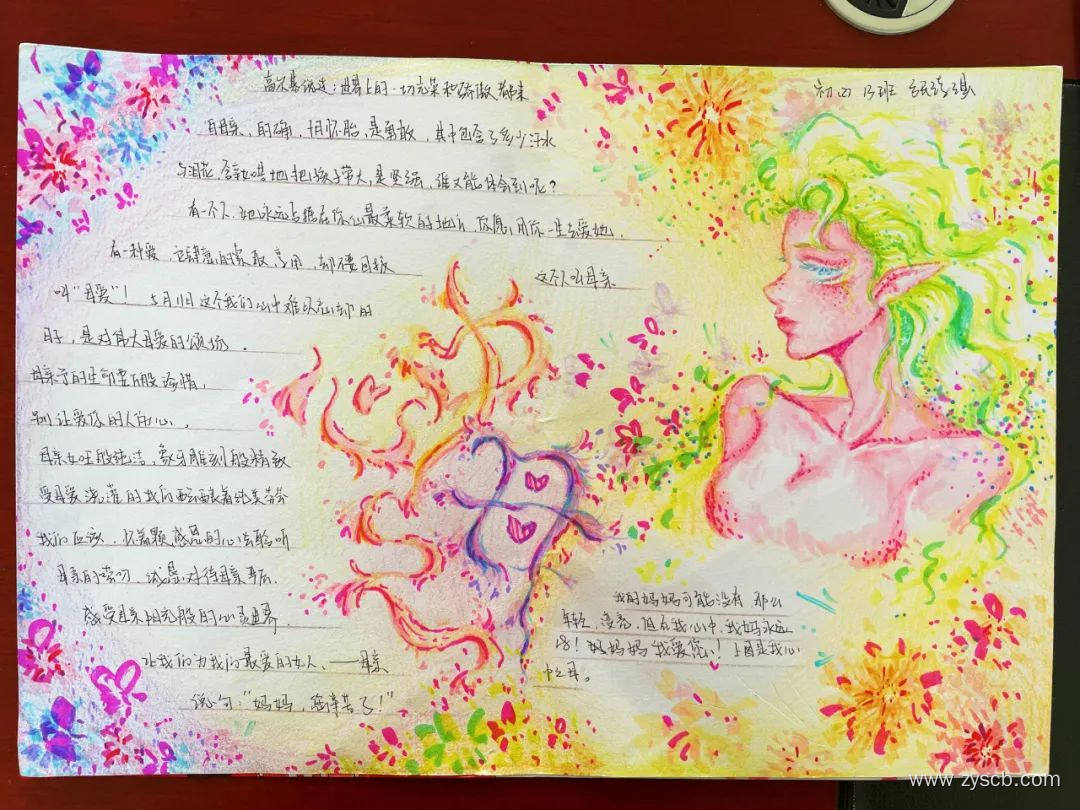 高尔基说过：世界上的一切光荣和骄傲都来
初四 13班
自母亲，的确，怀胎，是勇敢，其中包含了多少汗水
与泪花，含辛如苦地把孩子带大，是坚强，谁又能体会到呢？
有一个人，她永远占据在你心最柔软的地方，你愿用你一生去爱她，
有一种爱，它肆意的索取，享用，却不要回报
这个人叫母亲
叫"母爱"！ 5月11日 这个我们心中难以忘却的
日子，是对伟大母爱的颂扬。
母亲予的生命要百般珍惜，
别让爱你的人伤心。
母亲如玉般纯洁，象牙雕刻般精致
受母爱浇灌的我们要纯美芬芳
我们应该，怀着颗感恩的心去聆听
母亲的唠叨，感恩对待母亲
感受母亲阳光般的心灵世界
让我们为我们最爱的女人，——母亲
说一句："妈妈，您辛苦了！"
我的妈妈可能没有那么
年轻，漂亮，但在我心中，我妈永远
18！妈妈妈我爱您！上图是我心
中之母。
www.zyscb.com